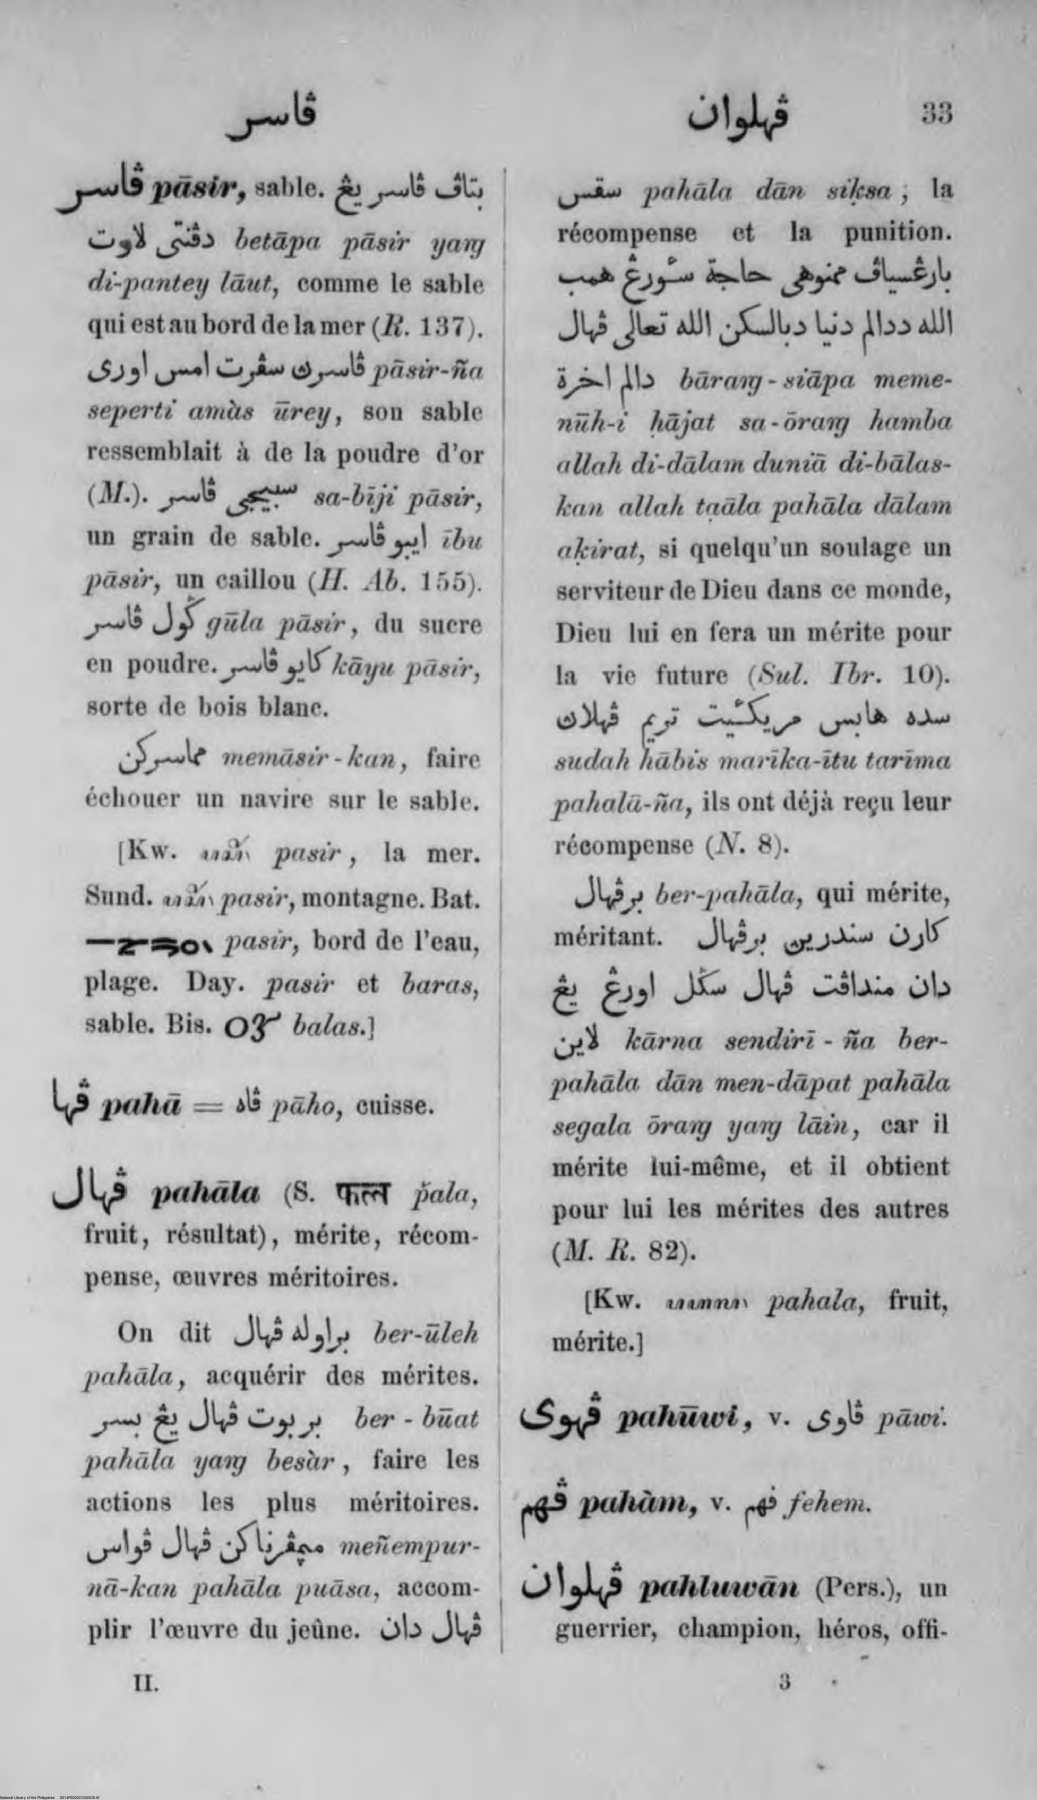 ڤاسر
ڤهلوان 33
ڤاسر pāsir, sable. بتاڤ ڤاسر يڠ
دڤنتى لاوت betāpa pāsir yaṅg
di-pantey lāut, comme le sable
qui est au bord de la mer (R. 137).
ڤاسرڽ سڤرت امس اورى pāsir-ña
seperti amàs ūrey, son sable
ressemblait à de la poudre d'or
(M.). سبيجى ڤاسر sa-bīji pāsir,
un grain de sable. ايبو ڤاسر ību
pāsir, un caillou (H. Ab. 155).
ڬول ڤاسر gūla pāsir, du sucre
en poudre. كايو ڤاسر kāyu pāsir,
sorte de bois blanc.
مماسركن memāsir-kan, faire
échouer un navire sur le sable.
[Kw. pasir, la mer.
Sund. pasir, montagne. Bat.
pasir, bord de l'eau,
plage. Day. pasir et baras,
sable. Bis. balas.]
ڤها pahā = ڤاه pāho, cuisse.
ڤهال pahāla (S. फल p̌ala,
fruit, résultat), mérite, récom-
pense, œuvres méritoires.
On dit براوله ڤهال ber-ūleh
pahāla, acquérir des mérites.
بربوت ڤهال يڠ بسر ber-būat
pahāla yaṅg besàr, faire les
actions les plus méritoires.
ڤهال ڤواس meñempur-
nā-kan pahāla puāsa, accom-
plir l'œuvre du jeûne. ڤهال دان
سقس pahāla dān siḳsa; la
récompense et la punition.
بارڠسياڤ ممنوهى حاجة سئورڠ همب
الله ددالم دنيا دبالسكن الله تعالى ڤهال
دالم اخرة bāraṅg-siāpa meme-
nūh-i ḥājat sa-ōraṅg hamba
allah di-dālam duniā di-bālas-
kan allah taāla pahāla dālam
aḳirat, si quelqu'un soulage un
serviteur de Dieu dans ce monde,
Dieu lui en fera un mérite pour
la vie future (Sul. Ibr. 10).
سده هابس مريكئيت تريم ڤهلاڽ
sudah hābis marīka-ītu tarīma
pahalā-ña, ils ont déjà reçu leur
récompense (N. 8).
برڤهال ber-pahāla, qui mérite,
méritant. كارن سندرين برڤهال
دان منداڤت ڤهال سڬل اورڠ يڠ
لاين kārna sendirī-ña ber-
pahāla dān men-dāpat pahāla
segala ōraṅg yaṅg lāin, car il
mérite lui-même, et il obtient
pour lui les mérites des autres
(M. R. 82).
[Kw. pahala, fruit,
mérite.]
ڤهوى pahūwi, v. ڤاوى pāwi.
ڤهم pahàm, v. فهم fehem.
ڤهلوان pahluwān (Pers.), un
guerrier, champion, héros, offi-
II.
3